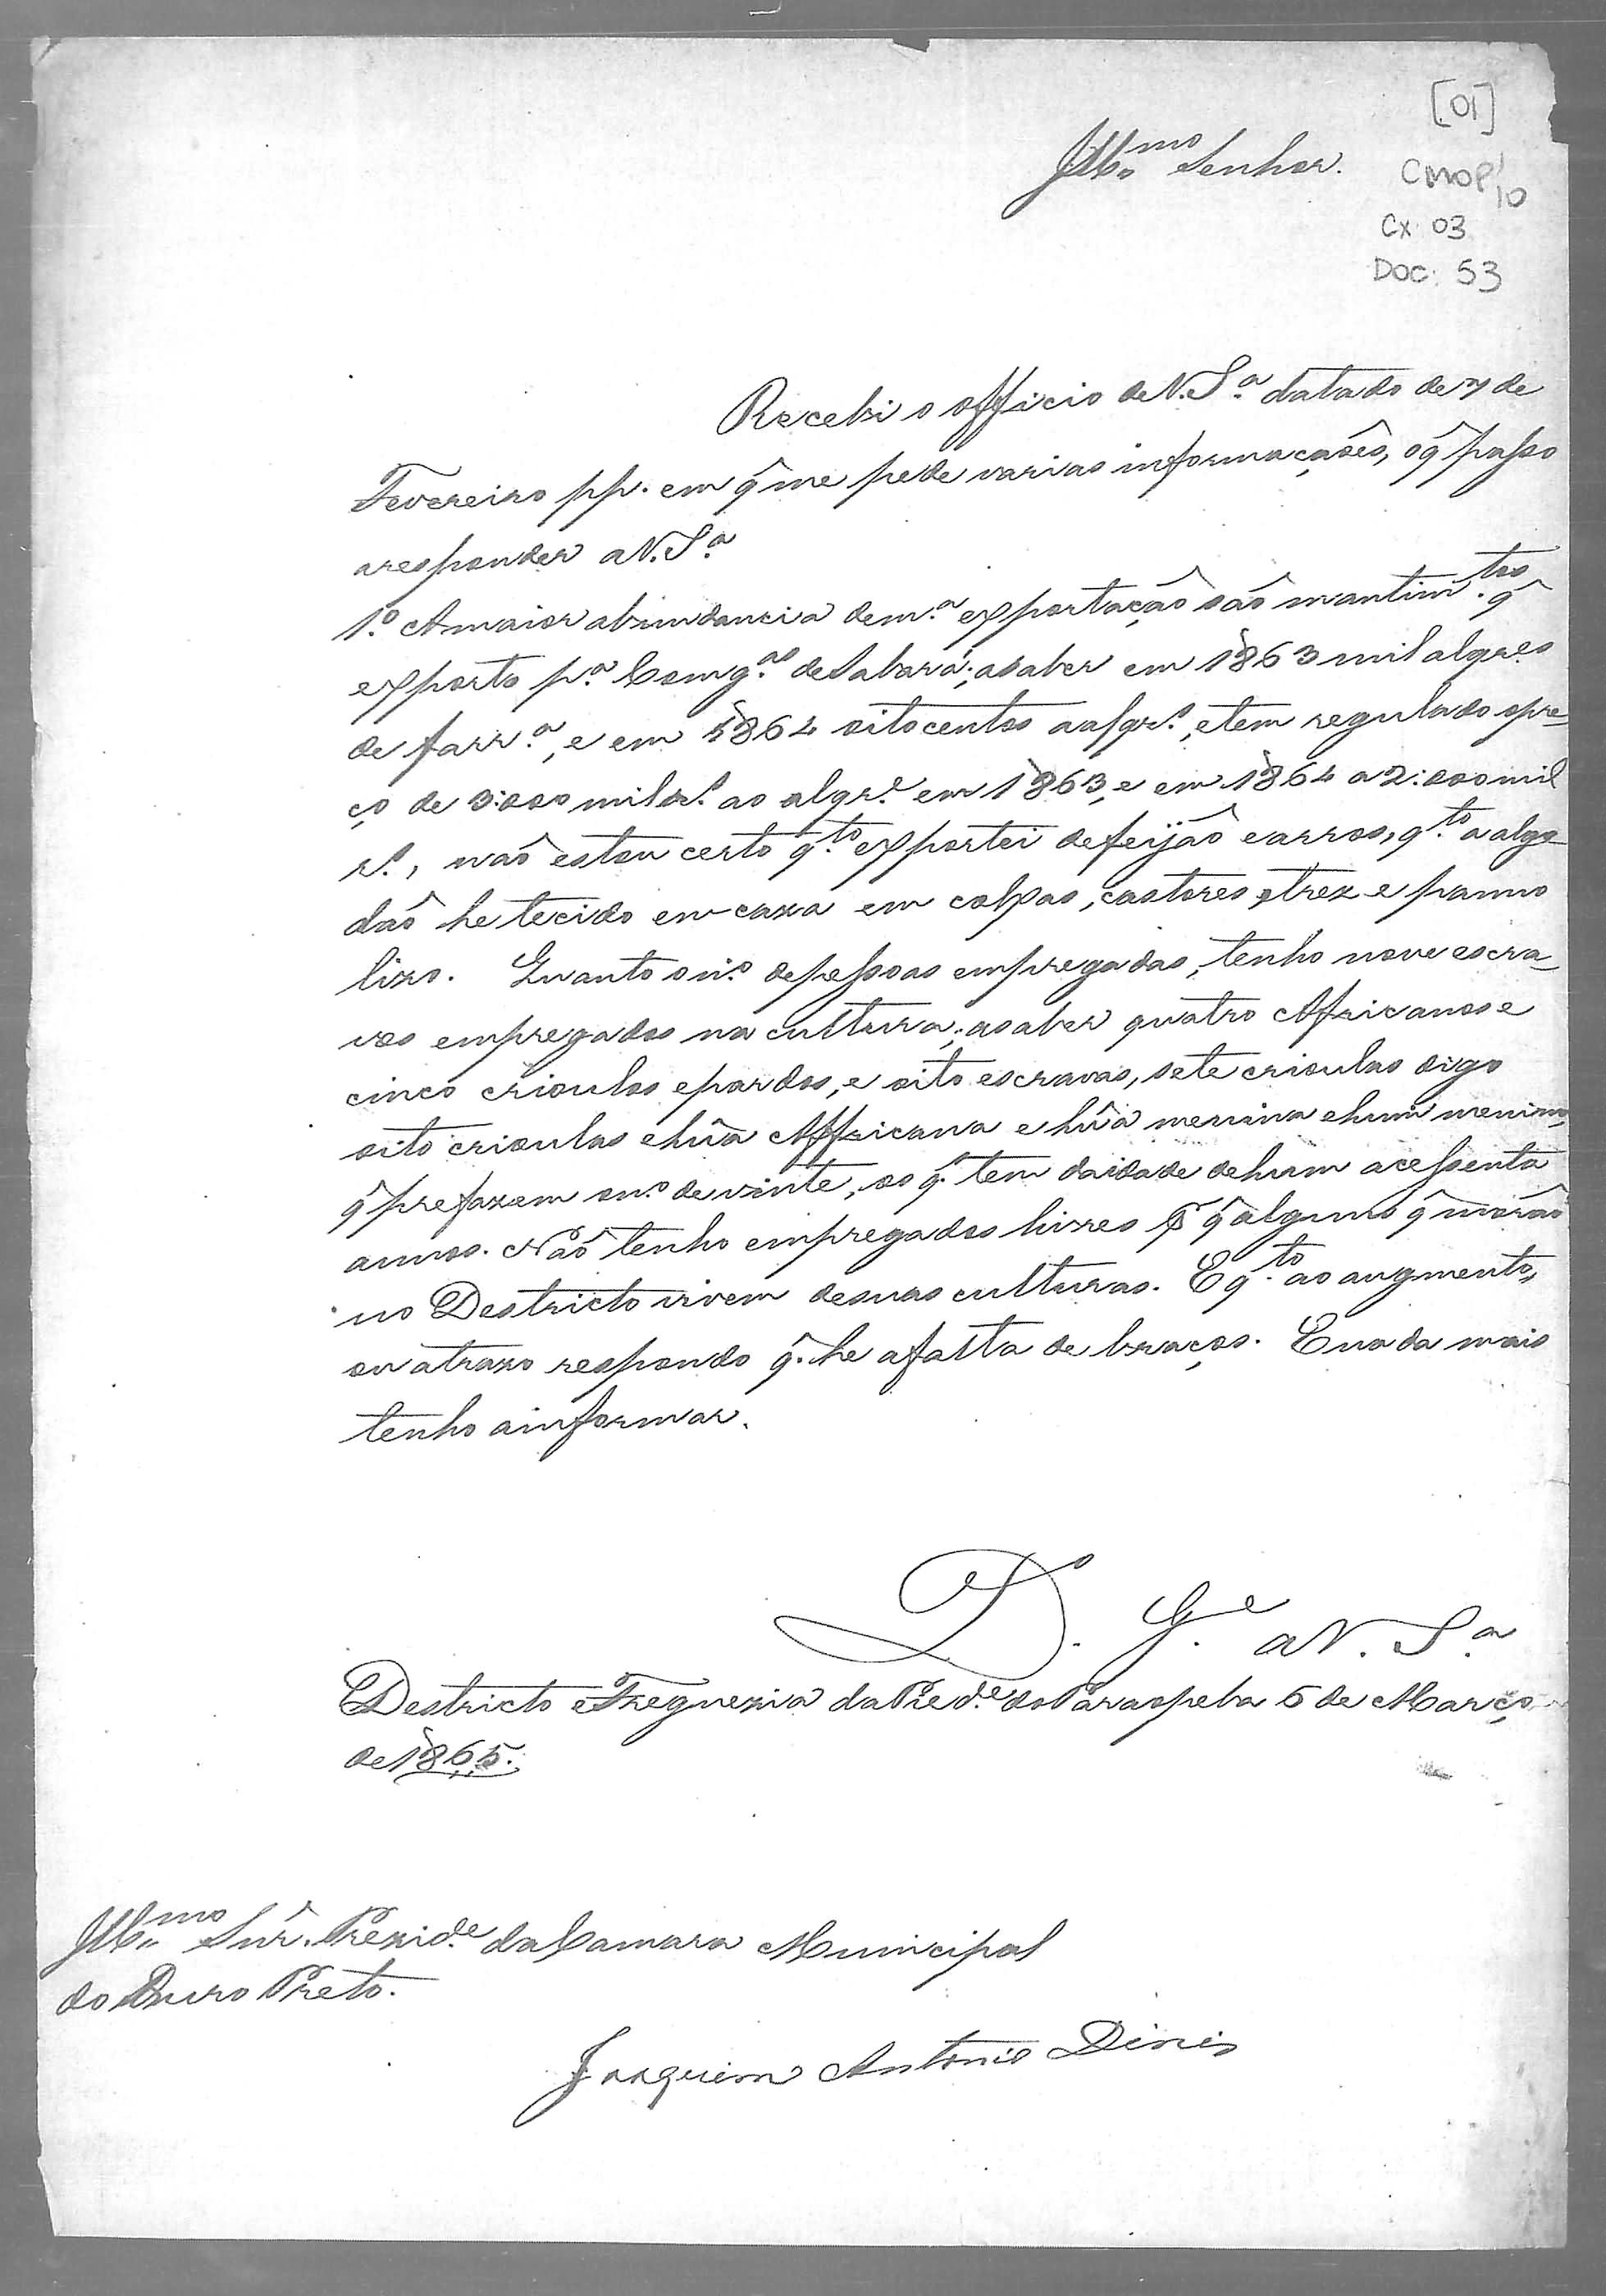 [01]
Illmo Senhor.
CMOP 10
Cx. 03
Doc. 53
Recebi o officio de V. S.ª datado de 7 de
Fevereiro pp. em q̂ me pede varias informaçoẽs, oq̂ passo
aresponder aV. S.ª
1.º A maior abundancia dem.ª exportaçaõ saõ mantim.tos q̂
exporto p.ª Comg.as de Sabará; asaber em 1863 mil alqr.es
de farr.ª, e em 1864 oitocentos aalqr.s, etem regulado opre-
ço de 3:000 mil r.s ao alqr.e em 1863, e em 1864 a 2:000 mil
r.s, naõ estou certo q.to exportei defeijaõ earros, q.to aalgo-
daõ he tecido em caza em colxas, castores, trez e panno
lizo. Quanto o n.º depessoas empregadas, tenho nove escra-
vos empregados na cultura; asaber quatro Africanos e
cinco crioulos epardos, e oito escravas, sete crioulas digo
oito crioulas ehũa Affricana e hũa menina ehum menino,
q̂ prefazem on.º devinte, os q.s tem daidade dehum acessenta
annos. Naõ tenho empregados livres q̂ alguns q̂ moraõ
no Destricto vivem desuas culturas. E q.to ao augmento,
ou atrazo respondo q̂. he afalta de braços. E nada mais
tenho ainformar.
D.s G.e aV. S.ª
Destricto eFreguezia daPied.e doParaopeba 5 de Março
de1865.
Illmo Snr̂. Prezid.e daCamara Municipal
do Ouro Preto.
Joaquim Antonio Diniz